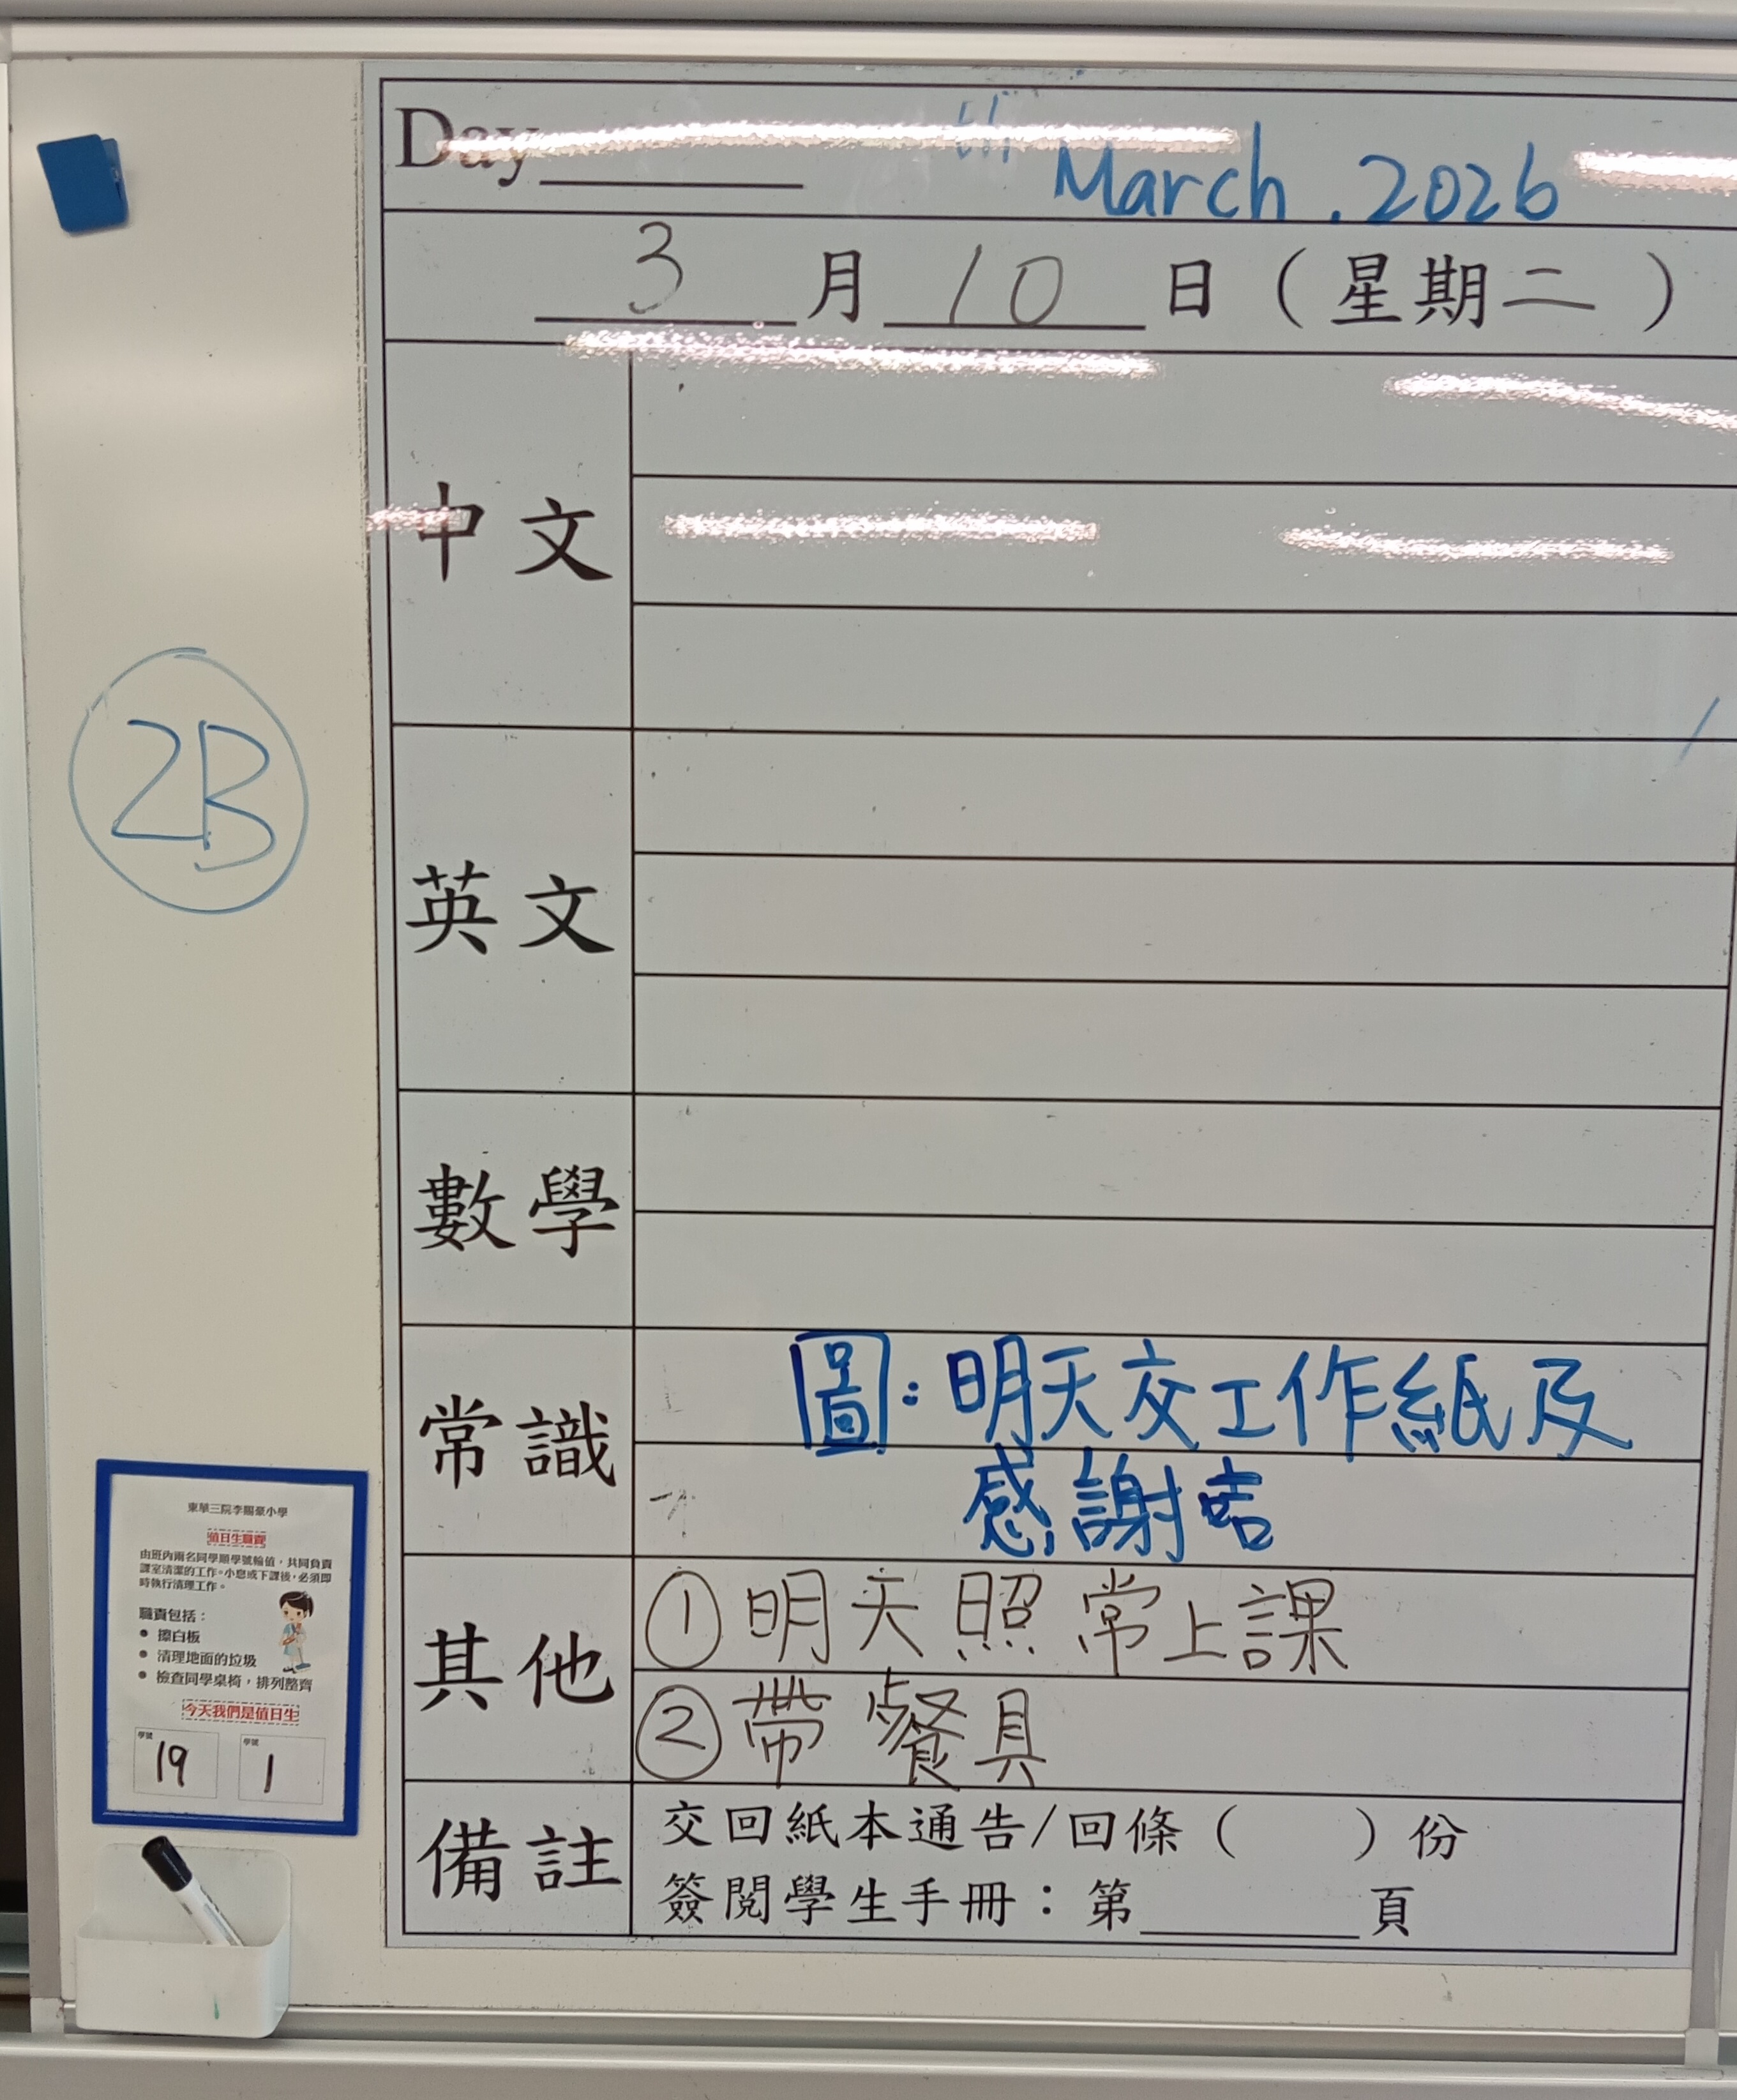 Day
th March . 2026
3 月 10 日 ( 星期二 )
中文
2B
英文
數學
常識
圖 : 明天交工作紙及
感謝咭
其他
① 明天照常上課
② 帶餐具
備註
交回紙本通告/回條 ( ) 份
簽閱學生手冊：第 頁
東華三院李賜豪小學
值日生職責
由班內兩名同學順學號輪值，共同負責
課室清潔的工作。小息或下課後，必須即
時執行清理工作。
職責包括：
● 擦白板
● 清理地面的垃圾
● 檢查同學桌椅，排列整齊
今天我們是值日生
學號 19
學號 1